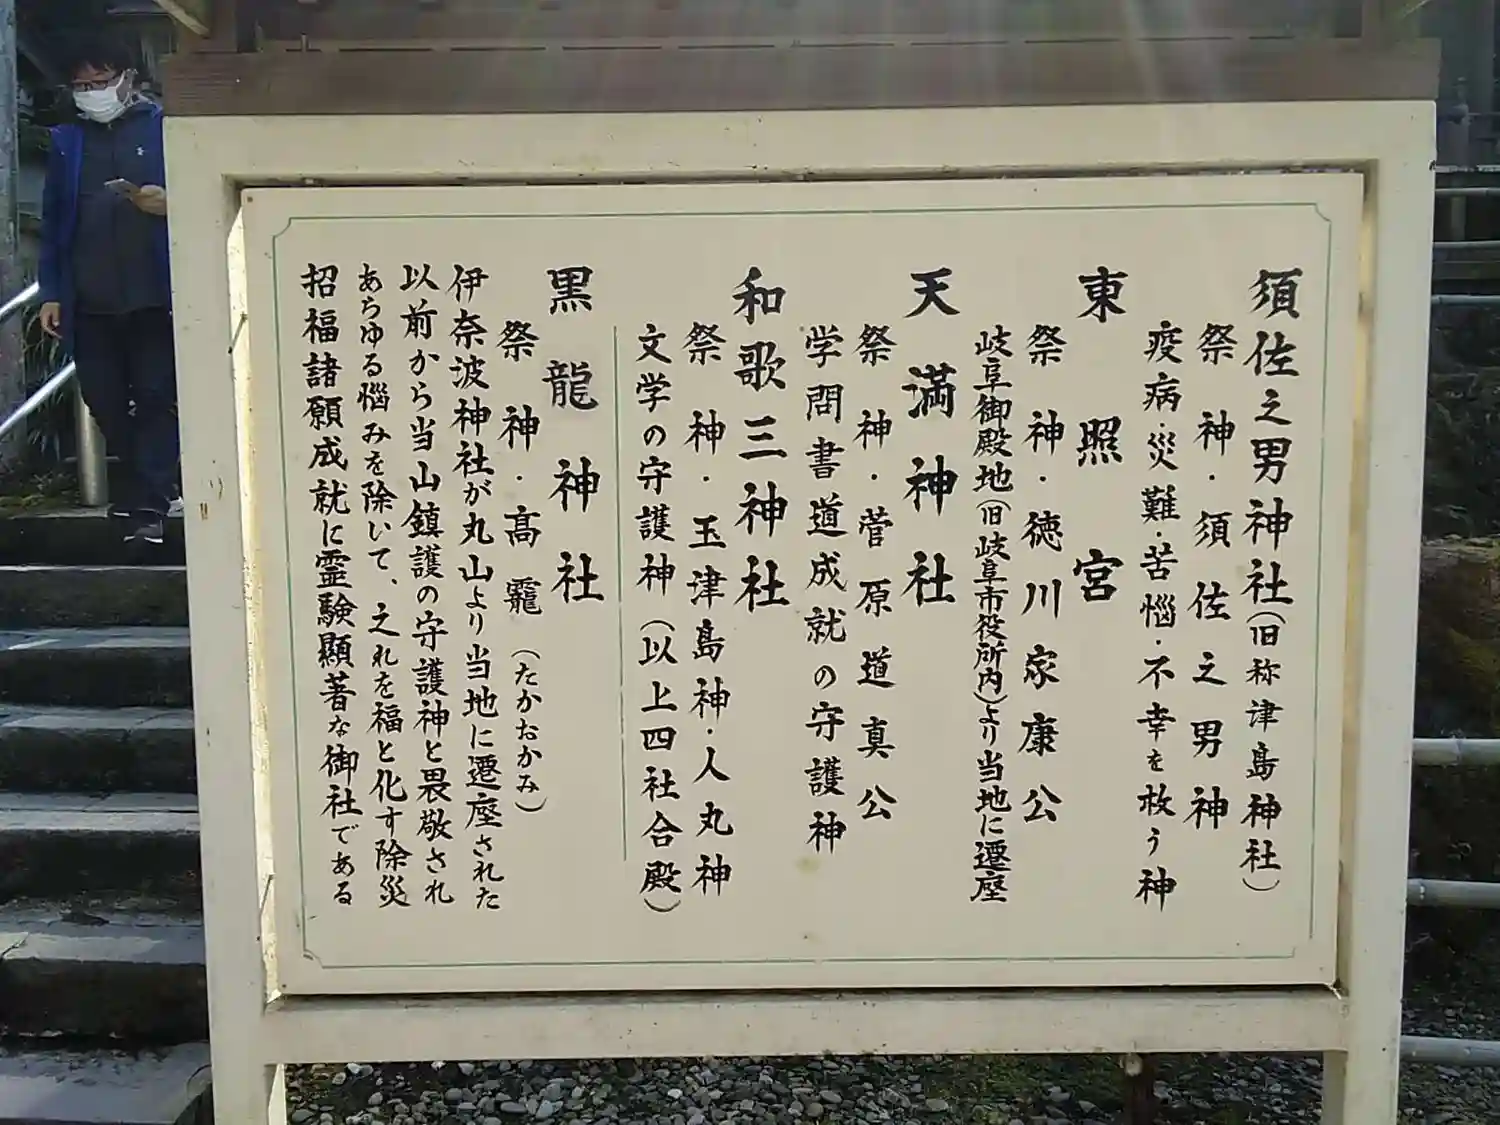 須佐之男神社（旧称津島神社）
祭神・須佐之男神
疫病・災難・苦悩・不幸を救う神
東照宮
祭神・徳川家康公
岐阜御殿地（旧岐阜市役所内）より当地に遷座
天満神社
祭神・菅原道真公
学問書道成就の守護神
和歌三神社
祭神・玉津島神・人丸神
文学の守護神（以上四社合殿）
黒龍神社
祭神・高龗（たかおかみ）
伊奈波神社が丸山より当地に遷座された
以前から当山鎮護の守護神と畏敬され
あらゆる悩みを除いて、之れを福と化す除災
招福諸願成就に霊験顯著な御社である